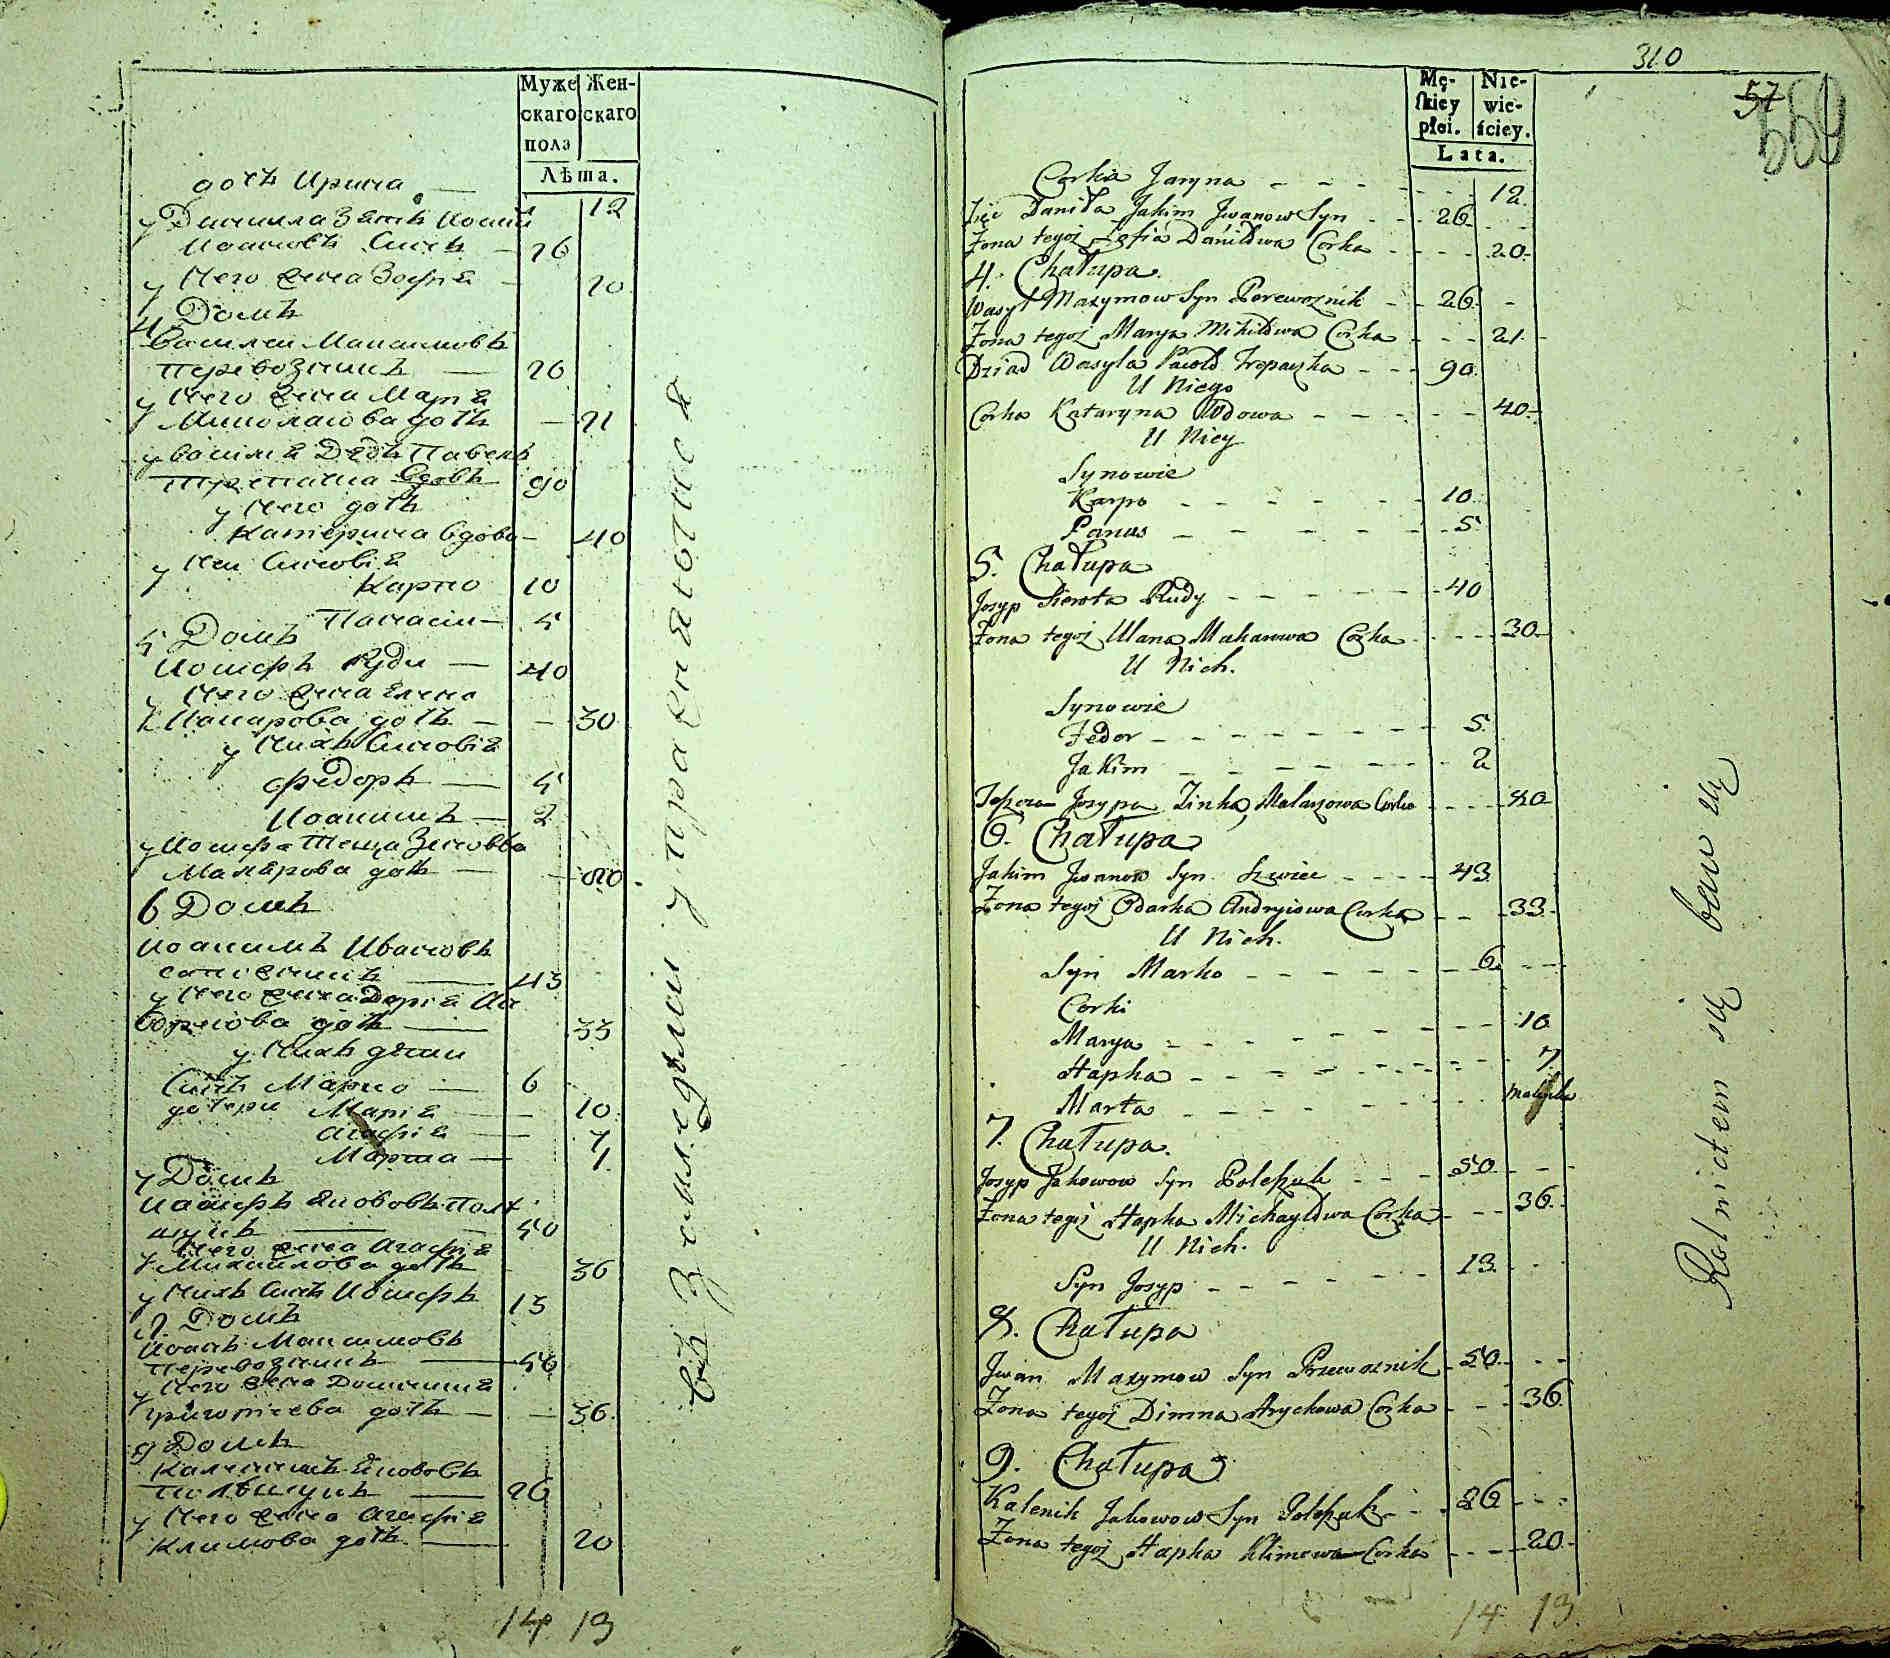 Муже Жен-
скаго скаго
пола
Лѣта.
дочь Ирина — 12
у Даниила Зять Иоаким
Иоановъ Сынъ — 26
у него жена Зофия — 20
4 Домъ
Василей Максимовъ
перевозникъ — 26
у него жена Мария
Миколаева дочь — 21
у Василия Дедъ Павелъ
вдовъ 90
у него дочь
Катерина вдова — 40
у ней Сыновія
Карпо 10
Панасъ — 5
5 Домъ
Иосифъ Руди — 40
у него жена Елена
Макарова дочь — 30
у нихъ Сыновія
Федоръ — 5
Иоакимъ — 2
у Иосифа Теща Зиновья
дочь — 80
6 Домъ
Иоакимъ Ивановъ
сапожникъ — 43
у него жена Дария Ан
дреева дочь — 33
у нихъ дети
Сынъ Марко — 6
дочери Мария — 10
Агафия — 7
Марта — 1
7 Домъ
Иосифъ Якововъ Поле
щукъ — 50
у него жена Агафия
Михайлова дочь 36
у нихъ Сынъ Иосифъ 13
8 Домъ
Иоанъ Максимовъ
перевозникъ — 50
у него жена Домникия
Григориева дочь — 36
9 Домъ
Каленикъ Якововъ
Полещукъ — 26
у него жена Агафия
Климова дочь — 20
14 13
въ Земледѣлии упражняютися
310
57
569
Mę- Nie-
skiey wie-
płci. ściey.
Lata.
Corka Jaryna - - - 12
Zięć Daniła Jakim Jwanow Syn - - 26
Żona tegoż Zofia Daniłowa Corka - - - 20
4. Chałupa.
Wasyl Maxymow Syn Perewoznik - - 26 -
Żona tegoż Marya Mikiłowa Corka - - - 21 -
Dziad Wasyla Pawło Trepaczka - - - 90
U Niego
Corka Kataryna Wdowa - - - 40 -
U Niey
Synowie
Karpo - - - 10
Panas - - - 5
5. Chałupa
Josyp Sierota Rudy - - - 40
Żona tegoż Ulana Makarowa Corka - - - 30
U Nich.
Synowie
Fedor - - - 5
Jakim - - - 2
Josypa Zinka Corka - - - 80
6. Chałupa
Jakim Jwanow Syn Szwiec - - - 43
Żona tegoż Odarka Andryiowa Corka - - - 33
U Nich.
Syn Marko - - - 6 - -
Corki
Marya - - - 10
Hapka - - - 7
Marta - - - maleńka
7. Chałupa.
Josyp Jakowow Syn Poleszuk - - - 50 - -
Żona tegoż Hapka Michayłowa Corka - - - 36
U Nich.
Syn Josyp - - - 13
8. Chałupa
Jwan Maxymow Syn Przewoznik 50 - -
Żona tegoż Dimna Hrychowa Corka - - - 36
9. Chałupa
Kalenik Jakowow Syn Poleszuk - - 26 - -
Żona tegoż Hapka Klimowa Corka - - - 20
14 13
Rolnictem się bawią